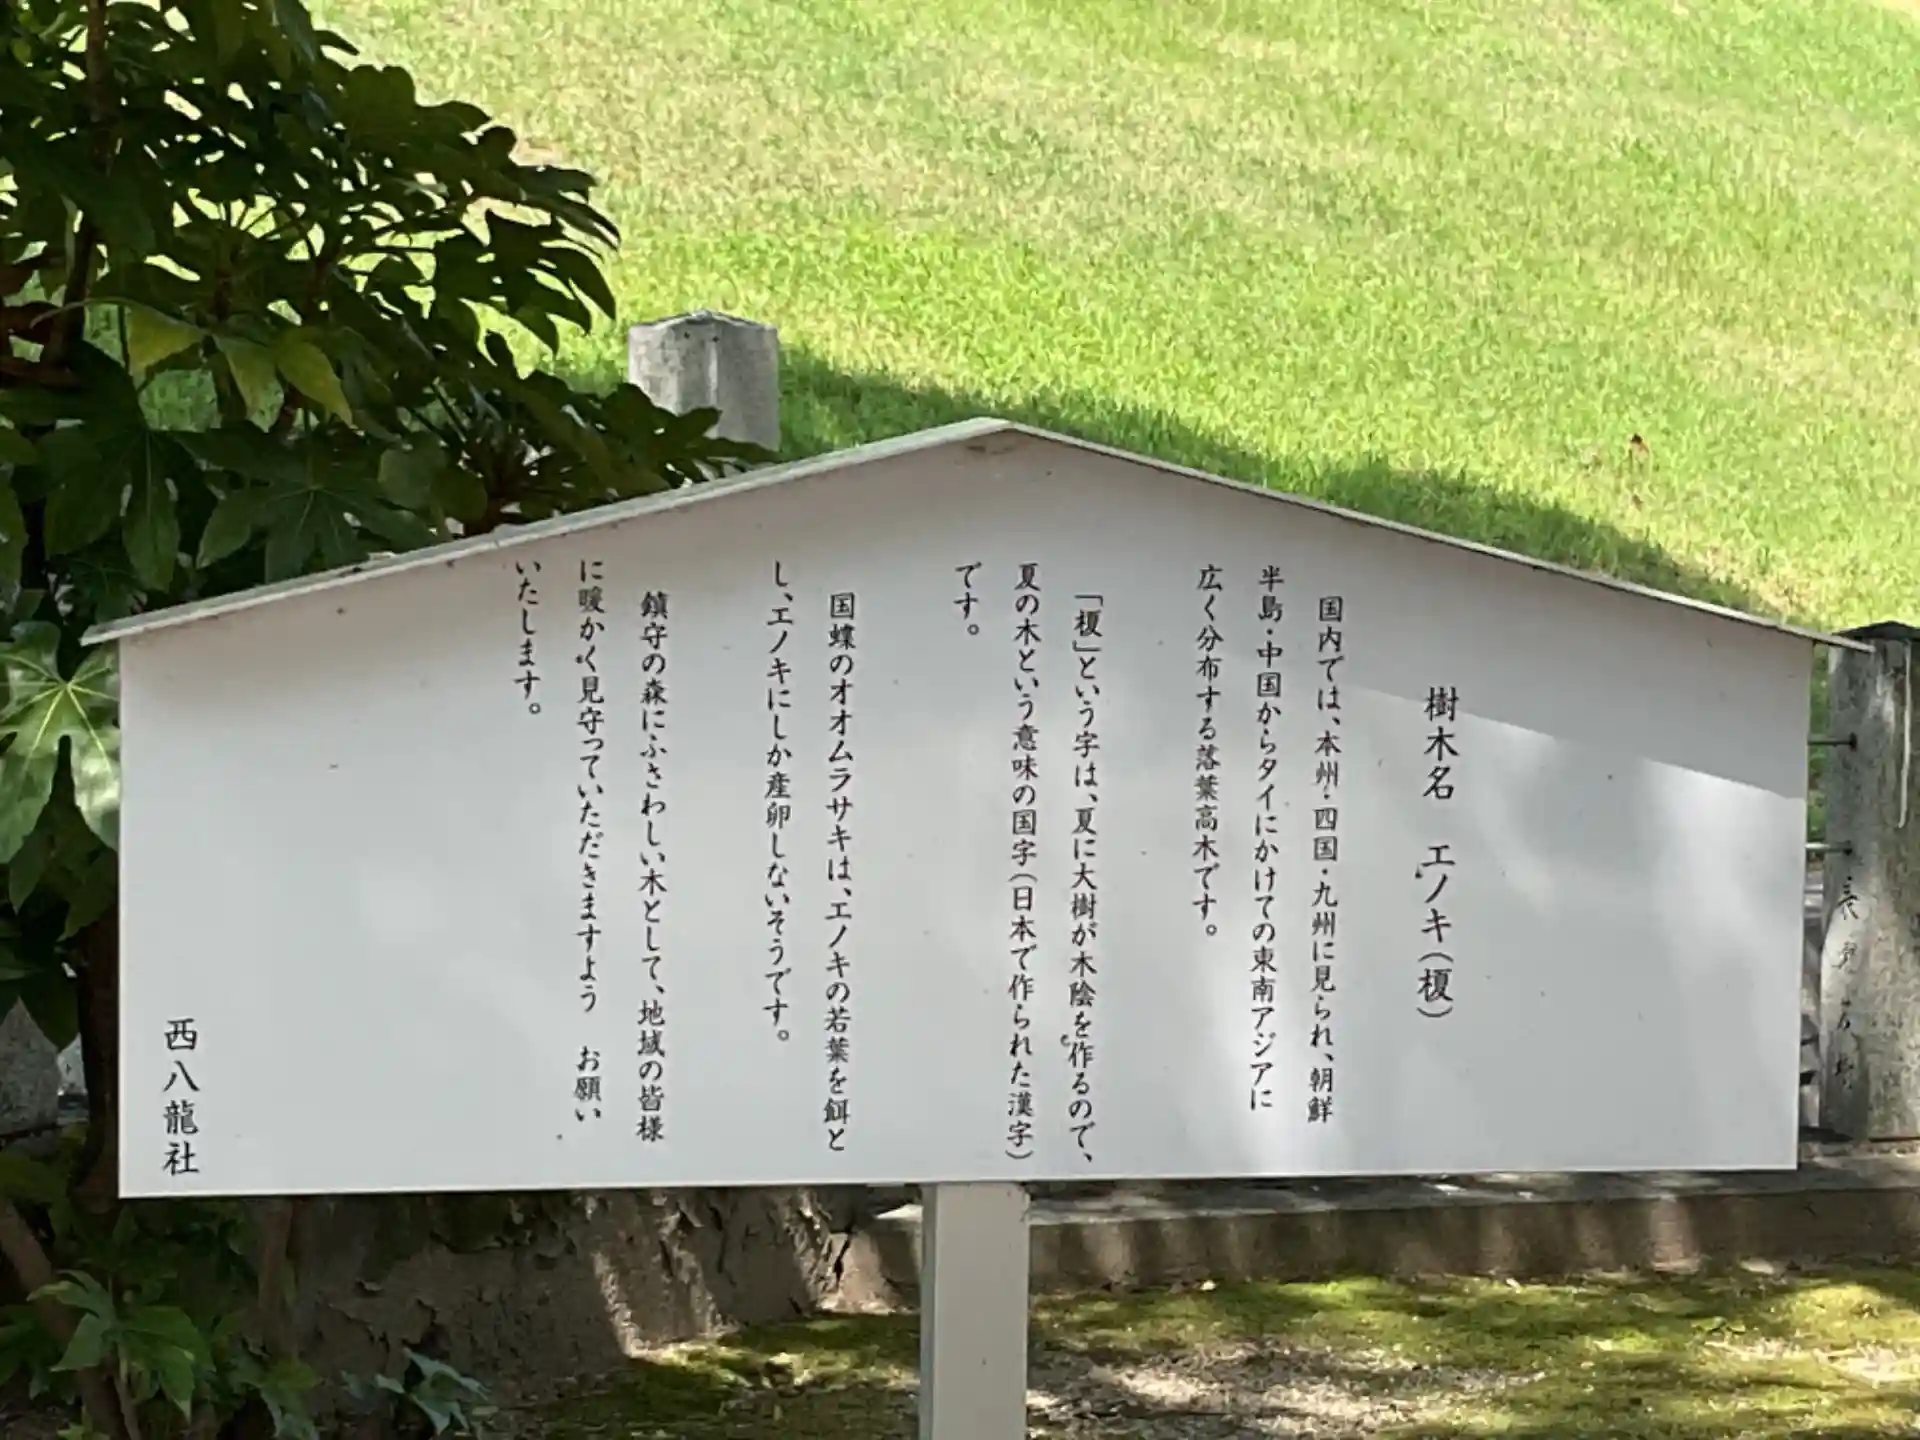 樹木名 エノキ(榎)
国内では、本州・四国・九州に見られ、朝鮮
半島・中国からタイにかけての東南アジアに
広く分布する落葉高木です。
「榎」という字は、夏に大樹が木陰を作るので、
夏の木という意味の国字(日本で作られた漢字)
です。
国蝶のオオムラサキは、エノキの若葉を餌と
し、エノキにしか産卵しないそうです。
鎮守の森にふさわしい木として、地域の皆様
に暖かく見守っていただきますよう お願い
いたします。
西八龍社